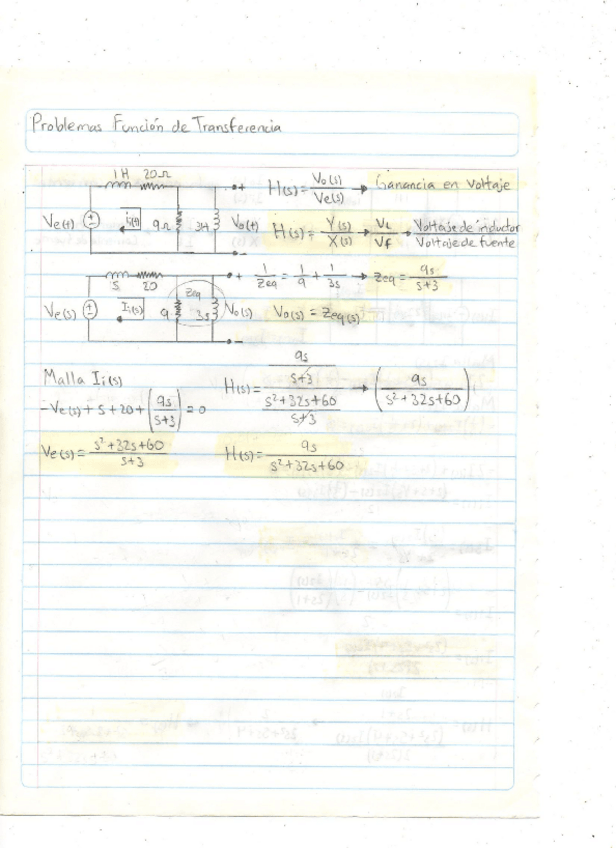 Problemas Función de Transferencia
1H 20Ω
Ve(t) i₁(t) 9Ω 3H Vo(t)
H(s) = Vo(s)/Ve(s) → Ganancia en voltaje
H(s) = Y(s)/X(s) → VL/Vf → Voltaje de inductor/Voltaje de fuente
S 20
Ve(s) I₁(s) 9 Zeq 3s Vo(s)
1/Zeq = 1/9 + 1/3s → Zeq = 9s/s+3
Vo(s) = Zeq(s)
Malla I₁(s)
-Ve(s) + s + 20 + (9s/s+3) = 0
H(s) = (9s/s+3)/(s²+32s+60/s+3) → (9s/s²+32s+60)
Ve(s) = s²+32s+60/s+3
H(s) = 9s/s²+32s+60